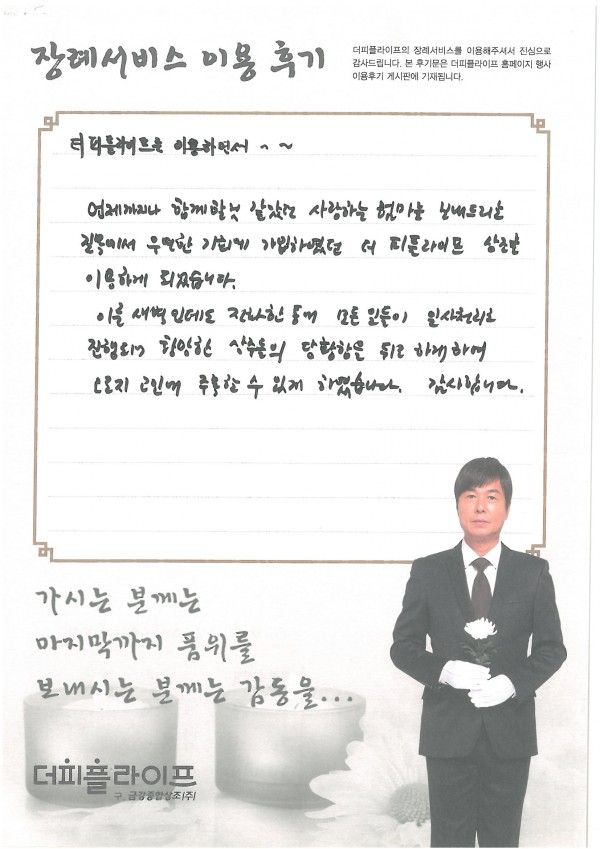 장례서비스 이용 후기
더피플라이프의 장례서비스를 이용해주셔서 진심으로
감사드립니다. 본 후기문은 더피플라이프 홈페이지 행사
이용후기 게시판에 기재됩니다.
더피플라이프를 이용하면서 ~ ~
언제까지나 함께할것 같았던 사랑하는 엄마를 보내드리는
길목에서 우연한 기회에 가입하였던 더 피플라이프 상조를
이용하게 되었습니다.
이를 새벽인데도 전화한통에 모든 일들이 일사천리로
진행되어 황망한 상주들의 당황함은 뒤로 하게하여
오로지 고인께 추모할 수 있게 하였습니다. 감사합니다.
가시는 분께는
마지막까지 품위를
보내시는 분께는 감동을...
더피플라이프
구. 금강종합상조(주)